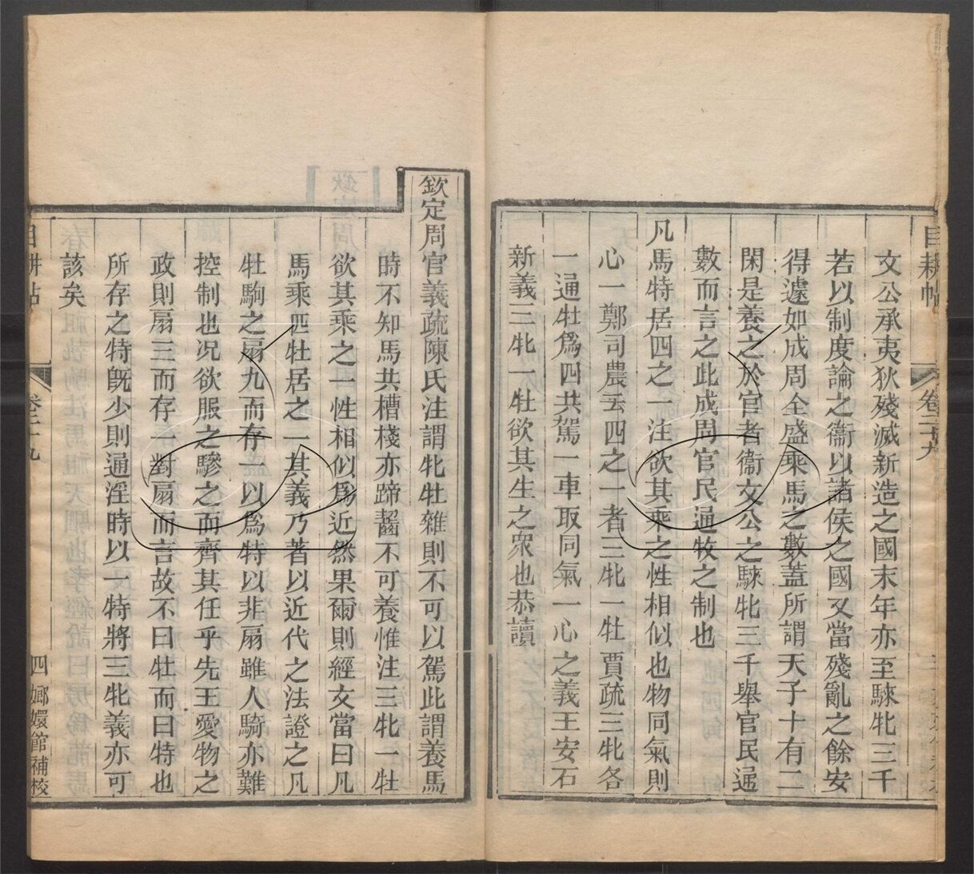 目耕帖
卷二十九
文公承夷狄殘滅新造之國末年亦至騋牝三千
若以制度論之衞以諸侯之國又當殘亂之餘安
得遽如成周全盛乘馬之數蓋所謂天子十有二
閑是養之於官者衞文公之騋牝三千舉官民通
數而言之此成周官民通牧之制也
凡馬特居四之一注欲其乘之性相似也物同氣則
心一鄭司農云四之一者三牝一牡賈疏三牝各
一通牡爲四共駕一車取同氣一心之義王安石
新義三牝一牡欲其生之衆也恭讀
欽定周官義疏陳氏注謂牝牡雜則不可以駕此謂養馬
時不知馬共槽棧亦蹄齧不可養惟注三牝一牡
欲其乘之一性相似爲近然果爾則經文當曰凡
馬乘匹牡居之一其義乃著以近代之法證之凡
牡駒之扇九而存一以爲特以非扇雖人騎亦難
控制也况欲服之驂之而齊其任乎先王愛物之
政則扇三而存一對扇而言故不曰牡而曰特也
所存之特旣少則通淫時以一特將三牝義亦可
該矣
目耕帖
卷二十九
四
嫏嬛館補校